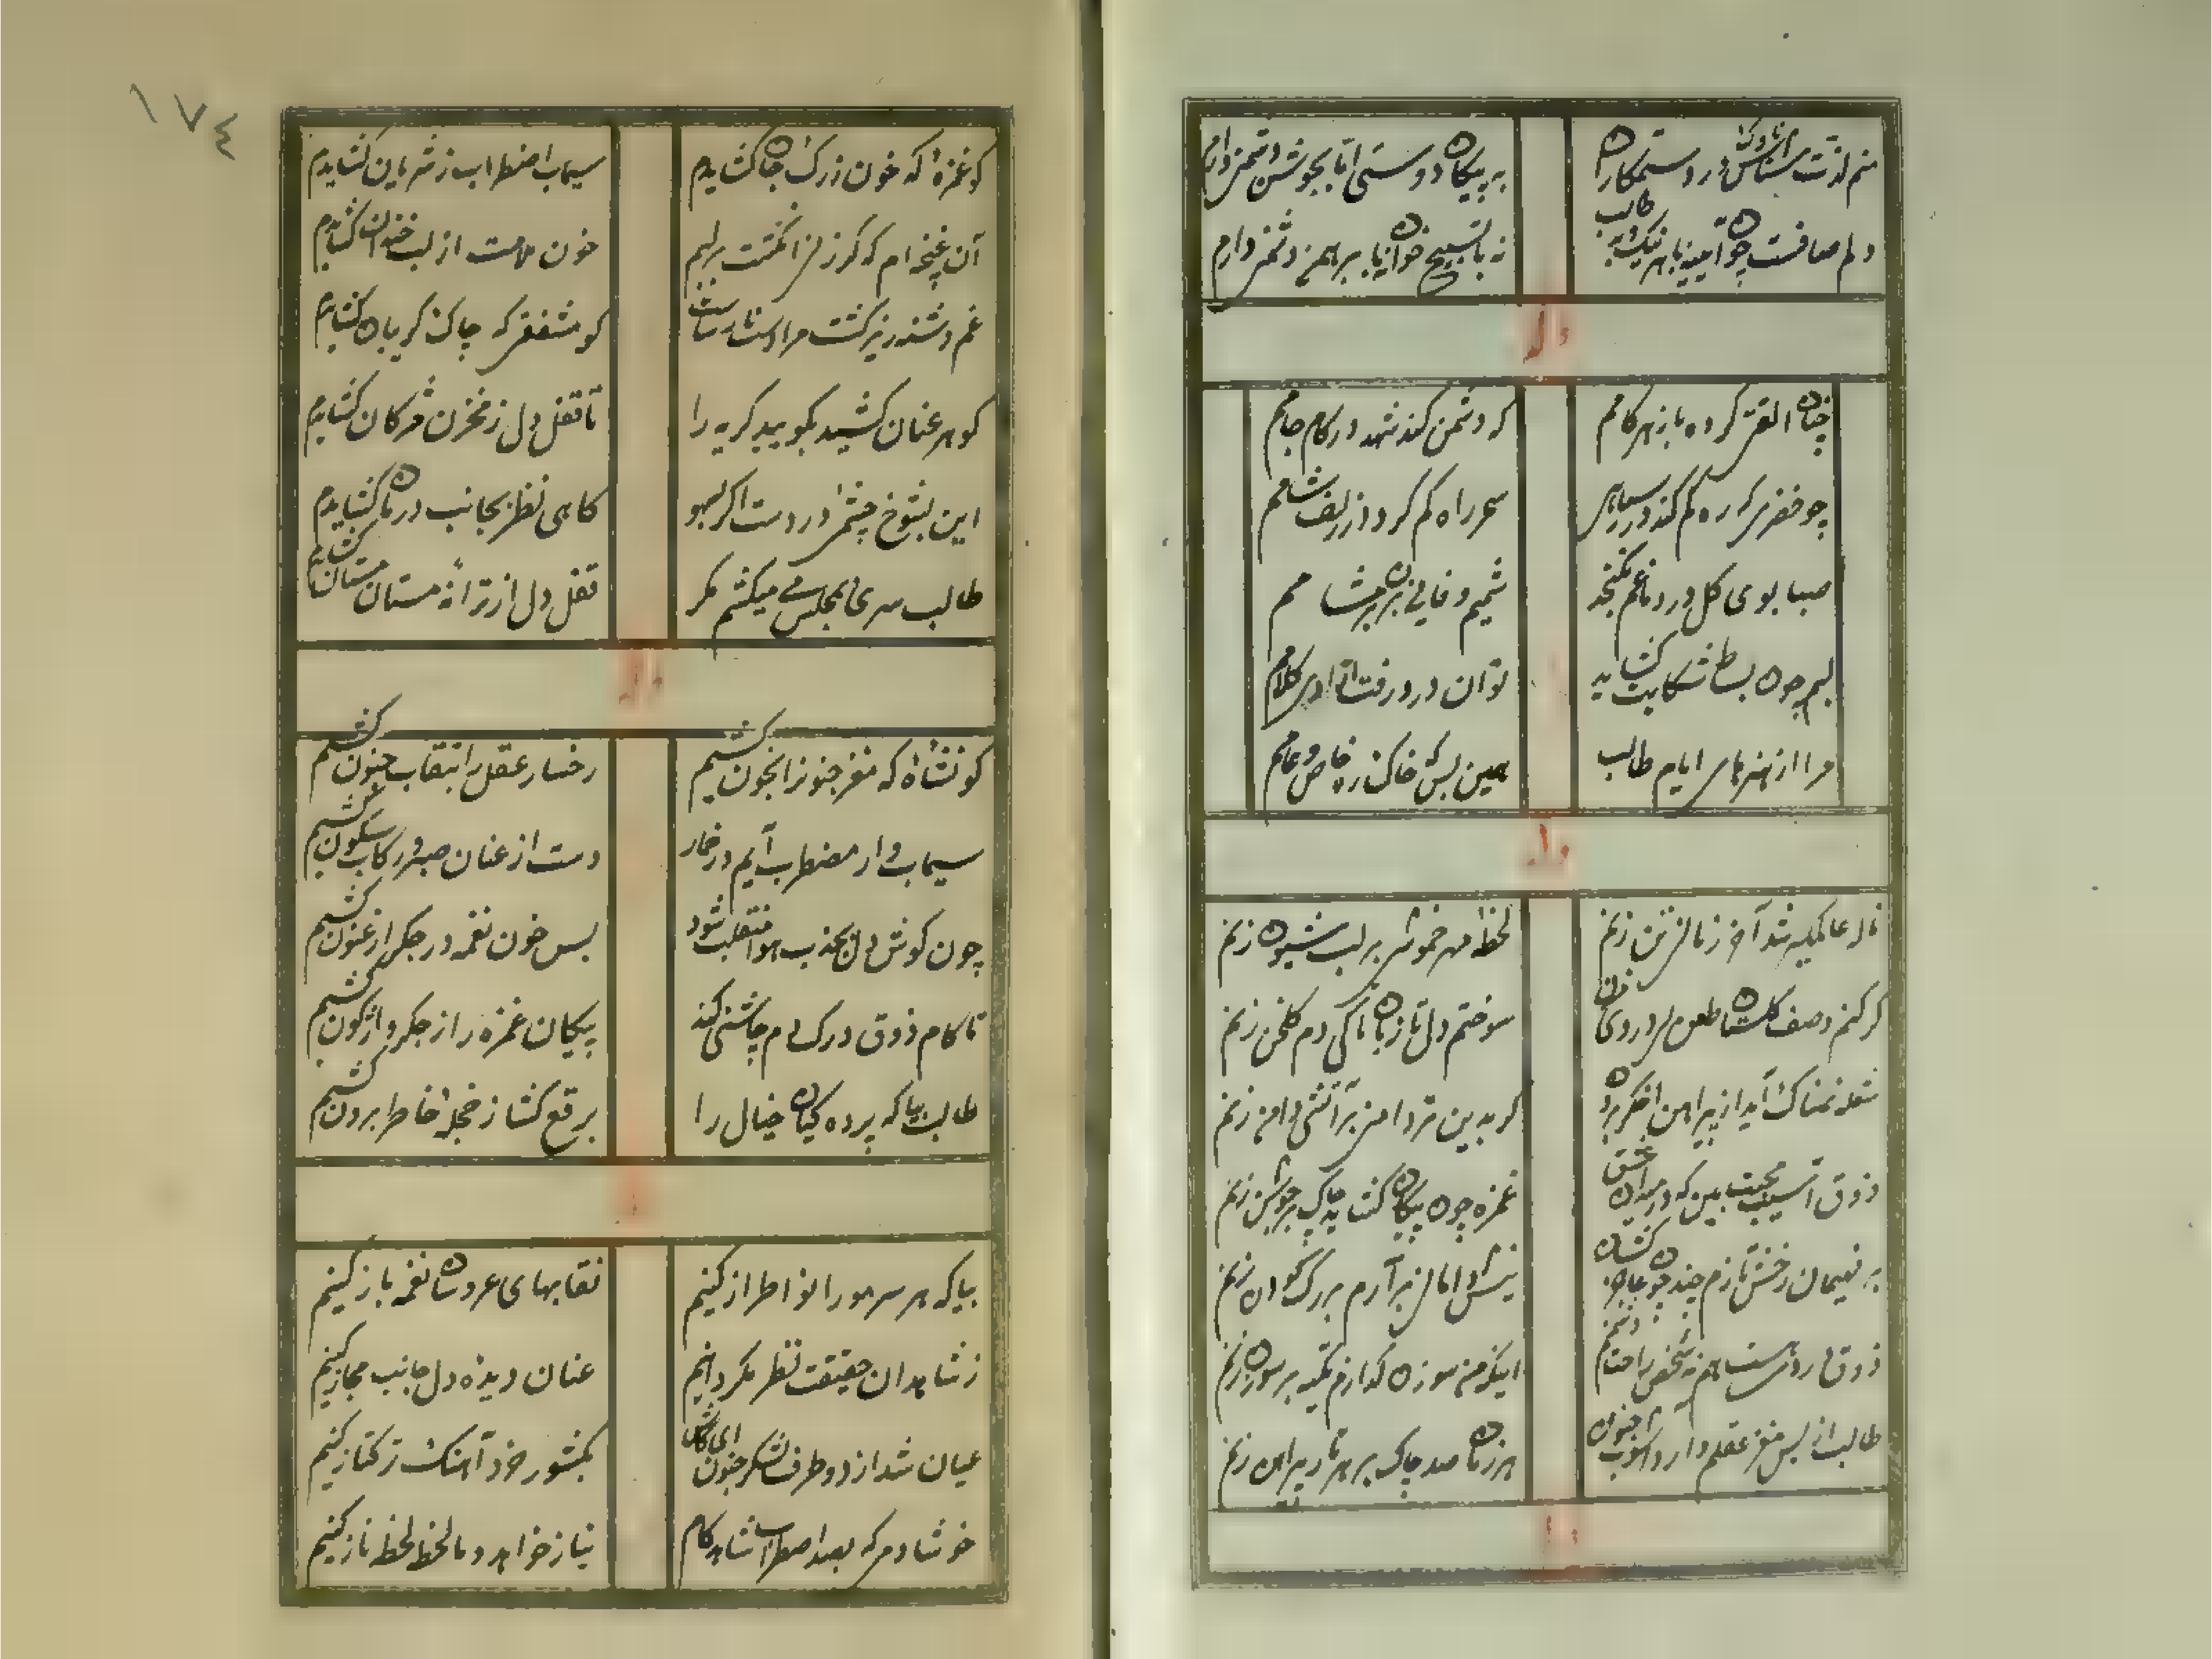 منم لذت شناس درد و ستمکاران
به پیکان دوستی اما بجوشن دشمنی دارم
دلم صافست چون آیینه با هر نیک و بد طالب
نه با تسبیح خوانان با برهمن دشمنی دارم
وله
چنان الفتی کرده با زهر کامم
که دشمن کند شهد در کام جامم
چو خضری که ره گم کند در سیاهی
سحر راه گم کرد در زلف شامم
صبا بوی گل در دماغم نگنجد
شمیم وفایی بزن بر مشامم
لبم چون بساط شکایت گشاید
توان درد رفت از ادای کلامم
مرا از هنرهای ایام طالب
همین بس که خاک ره خاص و عامم
وله
ناله عالمگیر شد آخر ز نالش تن زنم
لحظه مهر خموشی بر لب شیون زنم
گر کنم وصف گلستان طعن
سوختم دل تا زبان تا کی دم گلخن زنم
شعله نمناک آید از پیراهن اخگر برون
گر بدین تردامنی بر آتشی دامن زنم
ذوق آسیب محبت بین که در میدان عشق
غمزه چون پیکان گشاید چاک بر جوشن زنم
بر نعیمان رخش تازم چند چون
ذوق
اینکه من سوزن گذارم تکیه بر سوزن زنم
طالب از بس مغز عقلم دارد آشوب جنون
هر زمان صد چاک بر هر تار پیراهن زنم
وله
۱۷۴
کو غمزهٔ که خون ز رگ جان گشایدم
سیماب اضطراب ز شریان گشایدم
آن غنچه‌ام که گر زنی انگشت بر لبم
خون ملامت از لب خندان گشایدم
غم دشنه ریز گشت مرا
کو مشفقی که چاک گریبان گشایدم
گوهر عنان کشید بگویید گریه را
تا قفل دل ز مخزن مژگان گشایدم
این بس شوخ چشم درد است اگر بسهو
کاهی نظر بجانب درمان گشایدم
طالب سری بمجلس می میکشم مگر
قفل دل از ترانهٔ مستان گشایدم
وله
کو نشأهٔ که مغز جنونرا بخون کشیم
رخسار عقل را بنقاب جنون کشیم
سیماب وار مضطرب آییم در خمار
دست از عنان صبر و رکاب سکون کشیم
چون گوش دل بجذب هوا منقلب شود
بس خون نغمه در جگر ارغنون کشیم
تا کام ذوق درک الم چاشنی کند
پیکان غمزه را ز جگر واژگون کشیم
طالب بیا که پرده‌گیان خیال را
برقع گشا ز حجلهٔ خاطر برون کشیم
بیا که هر سر مو را نواطراز کنیم
نقابهای عروسان نغمه باز کنیم
ز شاهدان حقیقت نظر بگردانیم
عنان دیده و دل جانب مجاز کنیم
عیان شد از دو طرف لشکر جنون ای عقل
بکشور خرد آهنگ ترکتاز کنیم
خوشا دمی که بصد اضطراب شاهد کام
نیاز خواهد و ما لحظه لحظه ناز کنیم